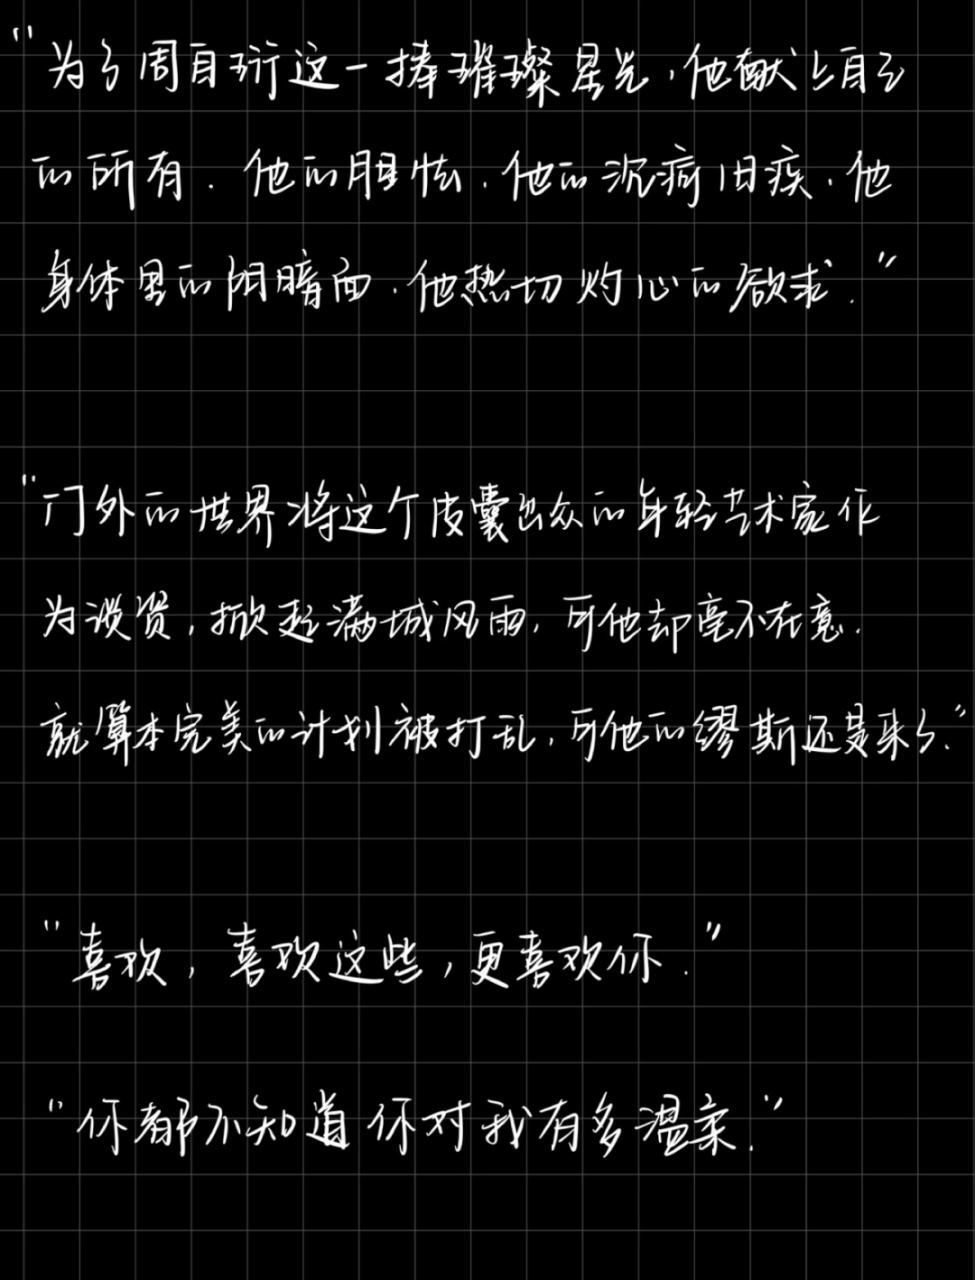 “为了周自珩这一捧璀璨星光，他献上自己
的所有．他的胆怯．他的沉疴旧疾．他
身体里的阴暗面．他热切灼心的欲求．”
“门外的世界将这个皮囊出众的年轻艺术家作
为谈资，掀起满城风雨，可他却毫不在意．
就算本完美的计划被打乱，可他的缪斯还是来了．”
“喜欢，喜欢这些，更喜欢你．”
“你都不知道你对我有多温柔．”